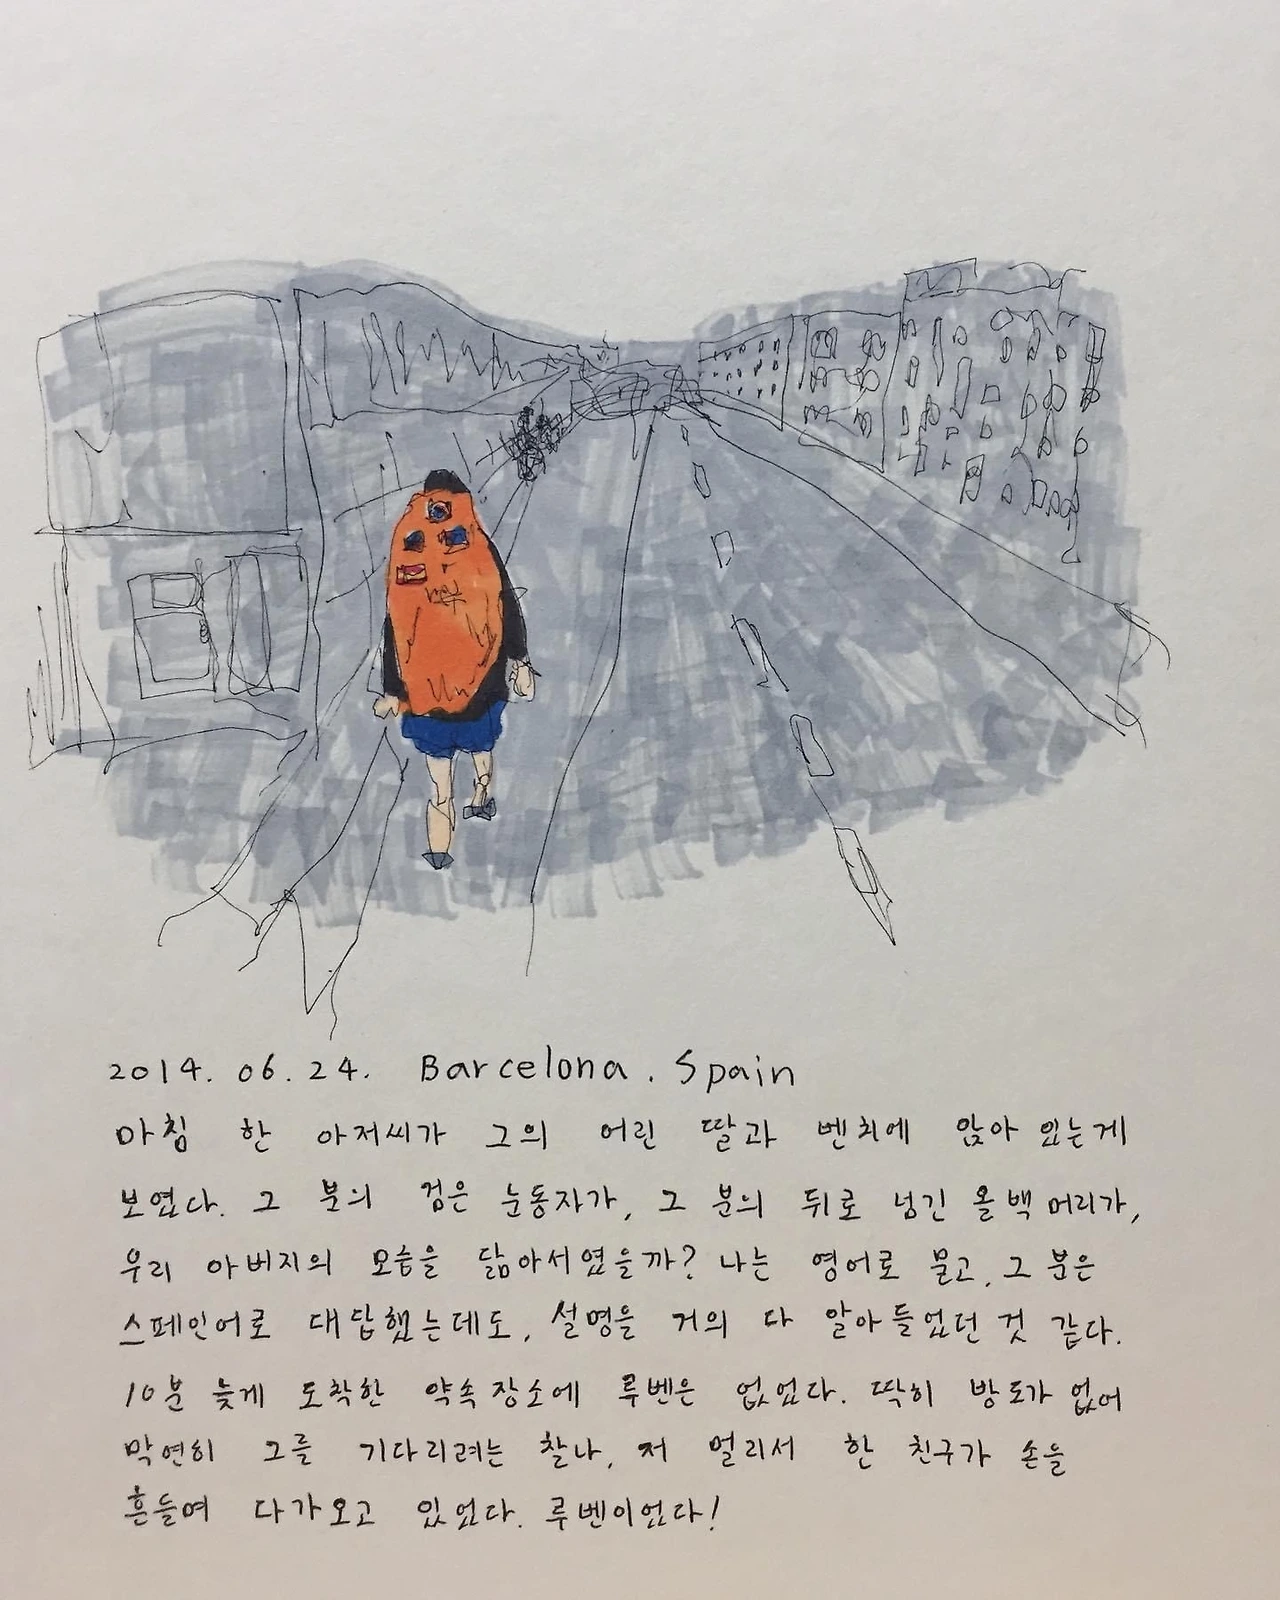 2014. 06. 24. Barcelona. Spain
마침 한 아저씨가 그의 어린 딸과 벤치에 앉아 있는게
보였다. 그 분의 검은 눈동자가, 그 분의 뒤로 넘긴 올백 머리가,
우리 아버지의 모습을 닮아서였을까? 나는 영어로 묻고, 그 분은
스페인어로 대답했는데도, 설명을 거의 다 알아들었던 것 같다.
10분 늦게 도착한 약속장소에 루벤은 없었다. 딱히 방도가 없어
막연히 그를 기다리려는 찰나, 저 멀리서 한 친구가 손을
흔들며 다가오고 있었다. 루벤이었다!